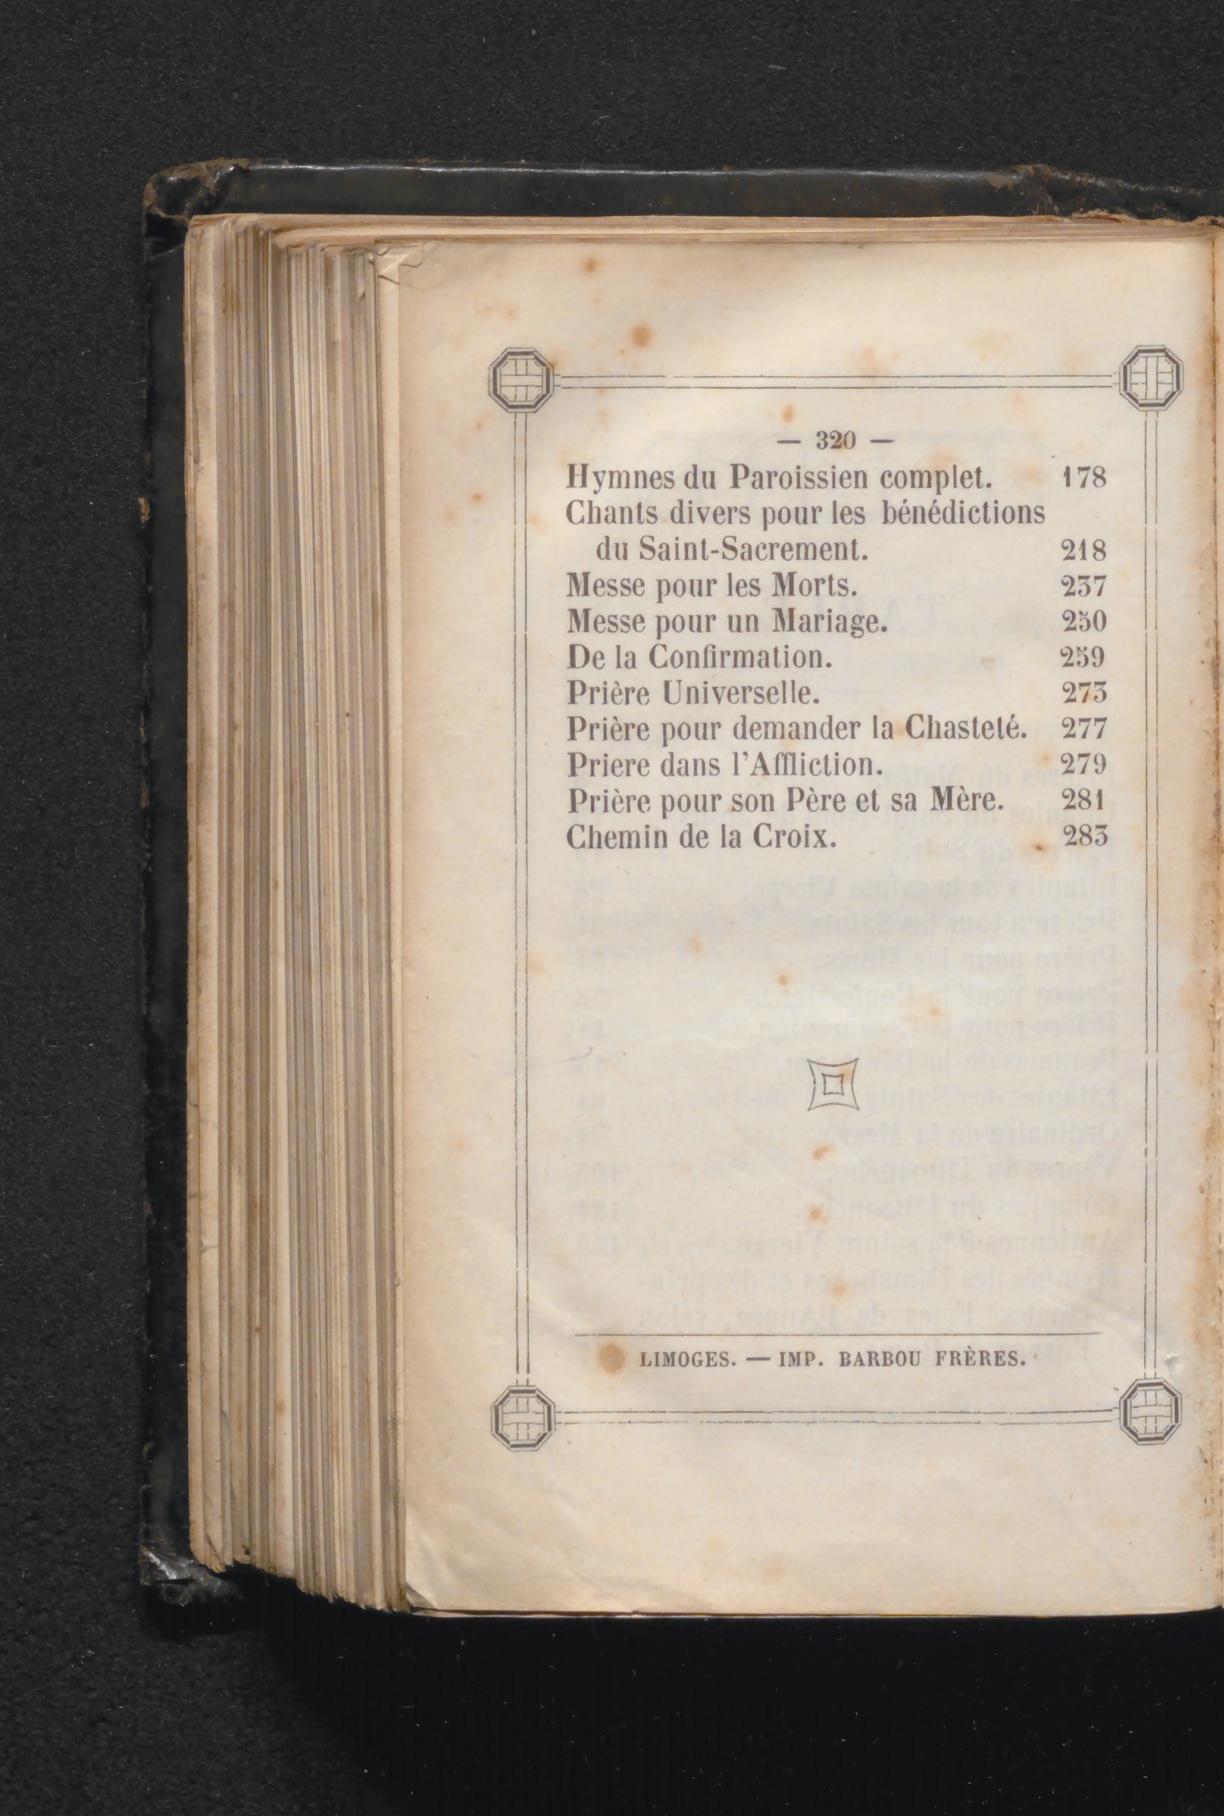 — 320 —
Hymnes du Paroissien complet. 178
Chants divers pour les bénédictions
du Saint-Sacrement. 218
Messe pour les Morts. 237
Messe pour un Mariage. 250
De la Confirmation. 259
Prière Universelle. 273
Prière pour demander la Chasteté. 277
Priere dans l'Affliction. 279
Prière pour son Père et sa Mère. 281
Chemin de la Croix. 283
LIMOGES. — IMP. BARBOU FRÈRES.